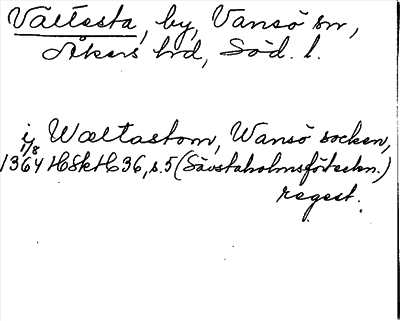 Vältesta, by, Vansö sn,
Åkers hd, Söd. l.
i Wæltastom, Wansö socken,
1/8
1364 HSkH 36, s. 5 (Sävstaholmsförteckn.)
regest.